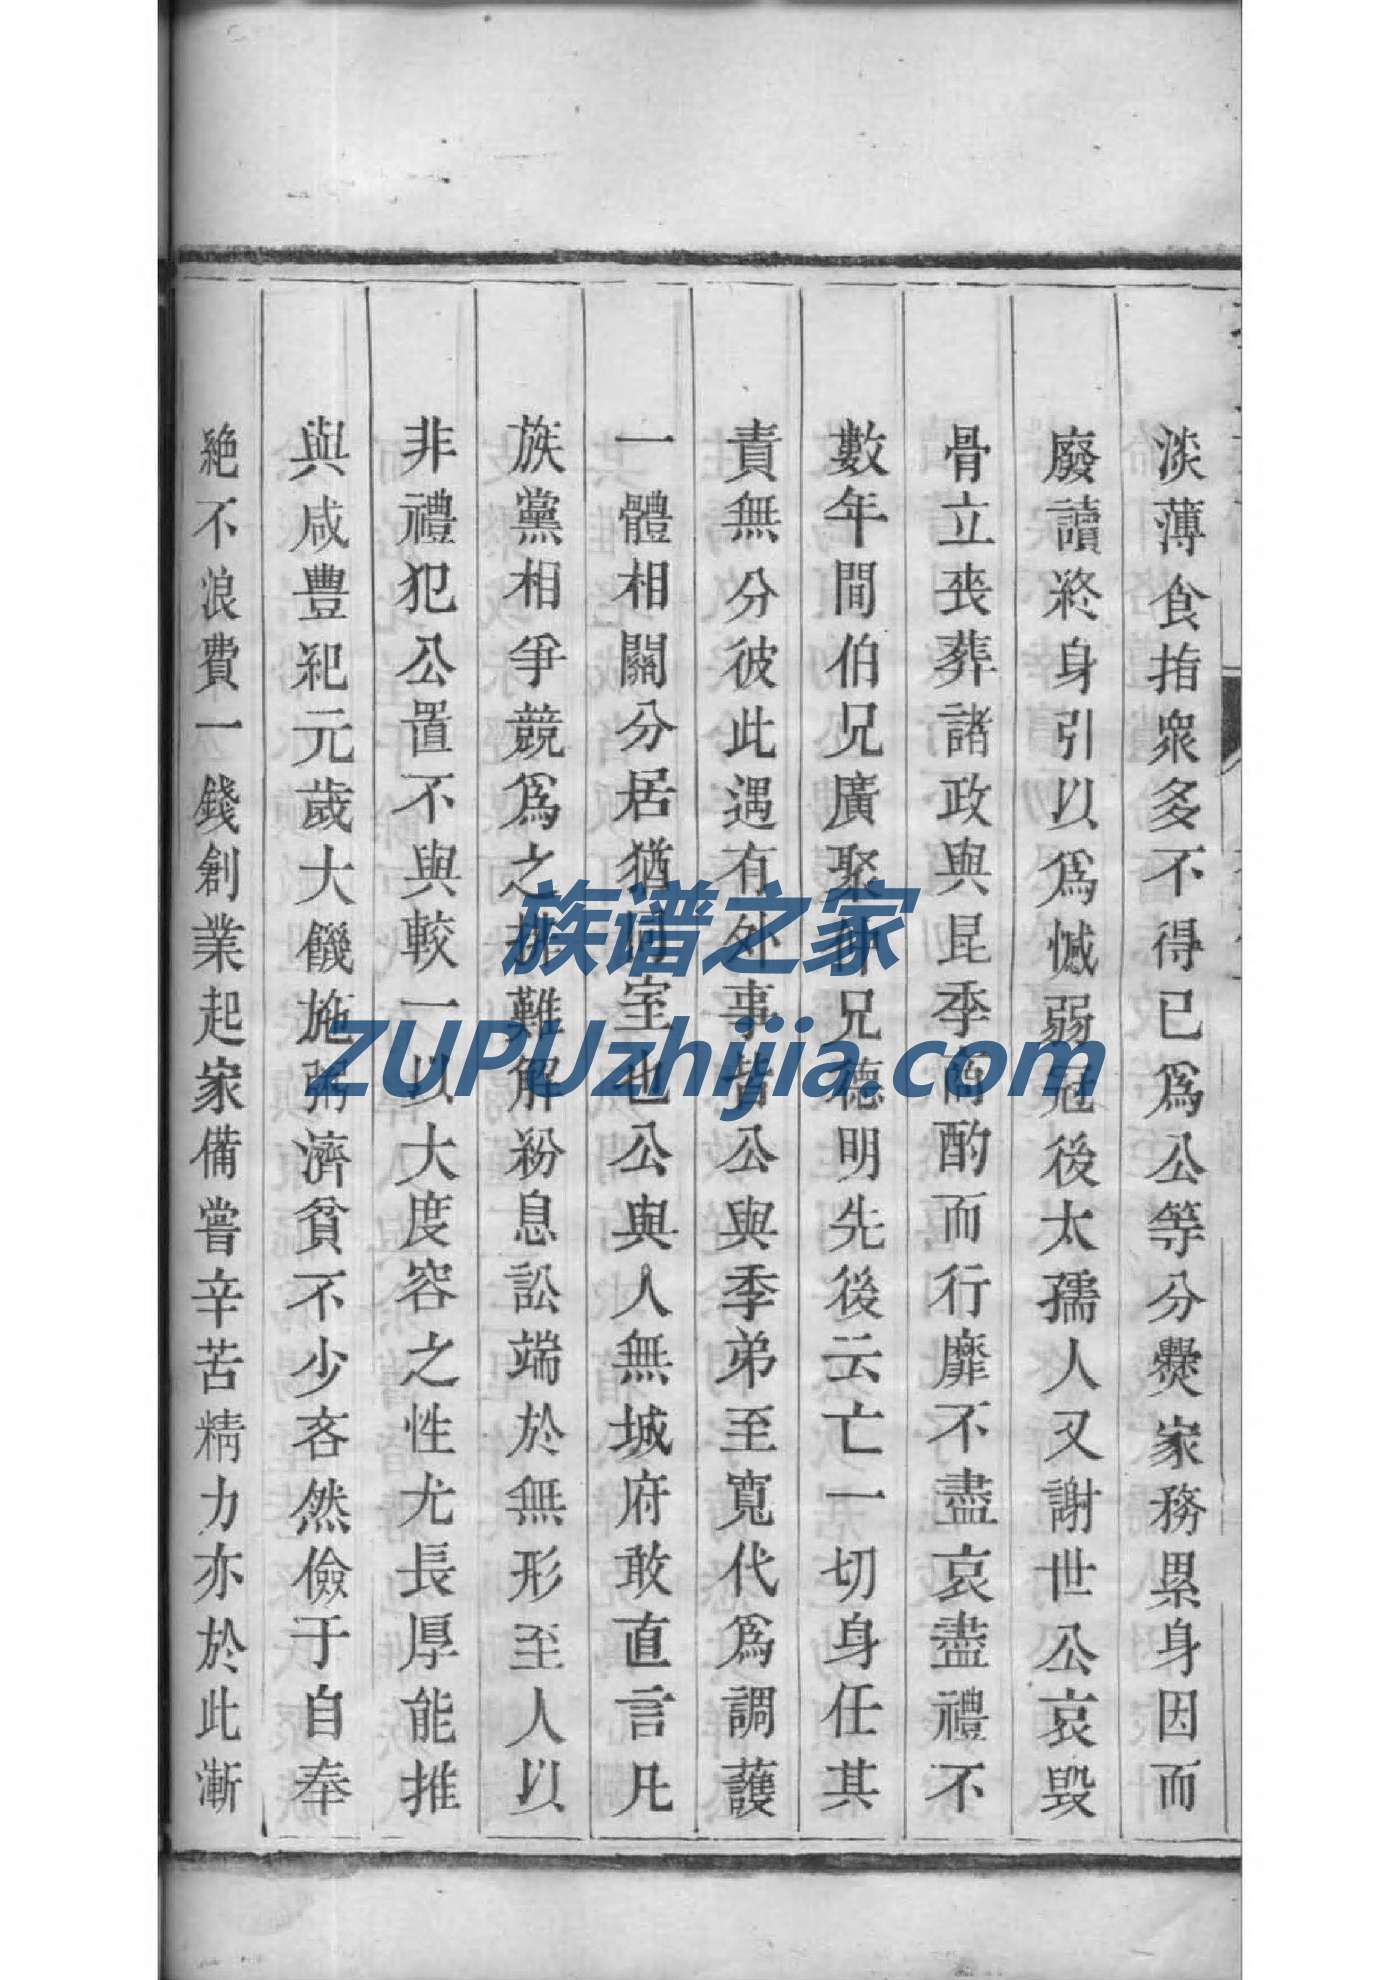 淡薄食指衆多不得已爲公等分爨家務累身因而
廢讀終身引以爲憾弱冠後太孺人又謝世公哀毀
骨立喪葬諸政與昆季商酌而行靡不盡哀盡禮不
數年間伯兄廣聚仲兄德明先後云亡一切身任其
責無分彼此遇有外事皆公與季弟至寬代爲調護
一體相關分居猶同室也公與人無城府敢直言凡
族黨相爭競爲之排難解紛息訟端於無形至人以
非禮犯公置不與較一以大度容之性尤長厚能推
與咸豐紀元歲大饑施粥濟貧不少吝然儉于自奉
絕不浪費一錢創業起家備嘗辛苦精力亦於此漸
族谱之家
ZUPUzhijia.com